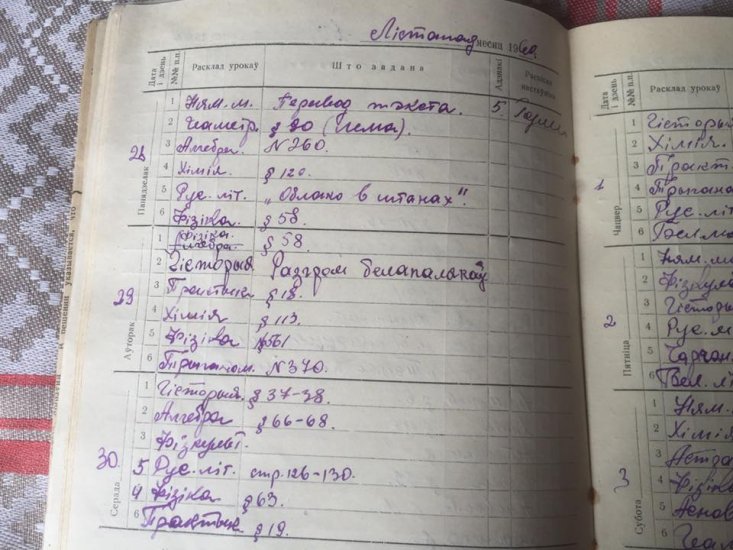 Лістапад месяц 1960
Дата і дзень №№ п.п. Расклад урокаў Што задана Адзнакі Роспіс настаўніка
28 Панядзелак
1 Ням. м. Перевод тэкста. 5
2 Геаметр. § 20 (
3 Алгебра. № 260.
4 Хімія. § 120.
5 Рус. літ. „Облако в штанах".
6 Фізіка. § 58.
29 Аўторак
1 Фізіка. § 58.
2 Гісторыя Разгром белапалякаў
3 Практыка § 18.
4 Хімія § 113.
5 Фізіка №561
6 Трыганом. №370.
30. Серада
1 Гісторыя. § 37-38.
2 Алгебра § 66-68.
3 Фізкульт.
5 Рус. літ. стр. 126-130.
4 Фізіка § 63.
6 Практыка § 19.
Дата і дзень №№ п.п. Расклад урокаў
1 Чацвер
1 Гісторы
2 Хімія.
3 Практ
4 Трыгана
5 Рус. л
6 Бел. м
2 Пятніца
1 Ням. м
2 Фізкуль
3 Гісторы
4 Рус. м
5 Чарчэн
6 Бел. л
3 Субота
1 Ням.
2 Хімія
3
4 Фізіка
5 Аснов